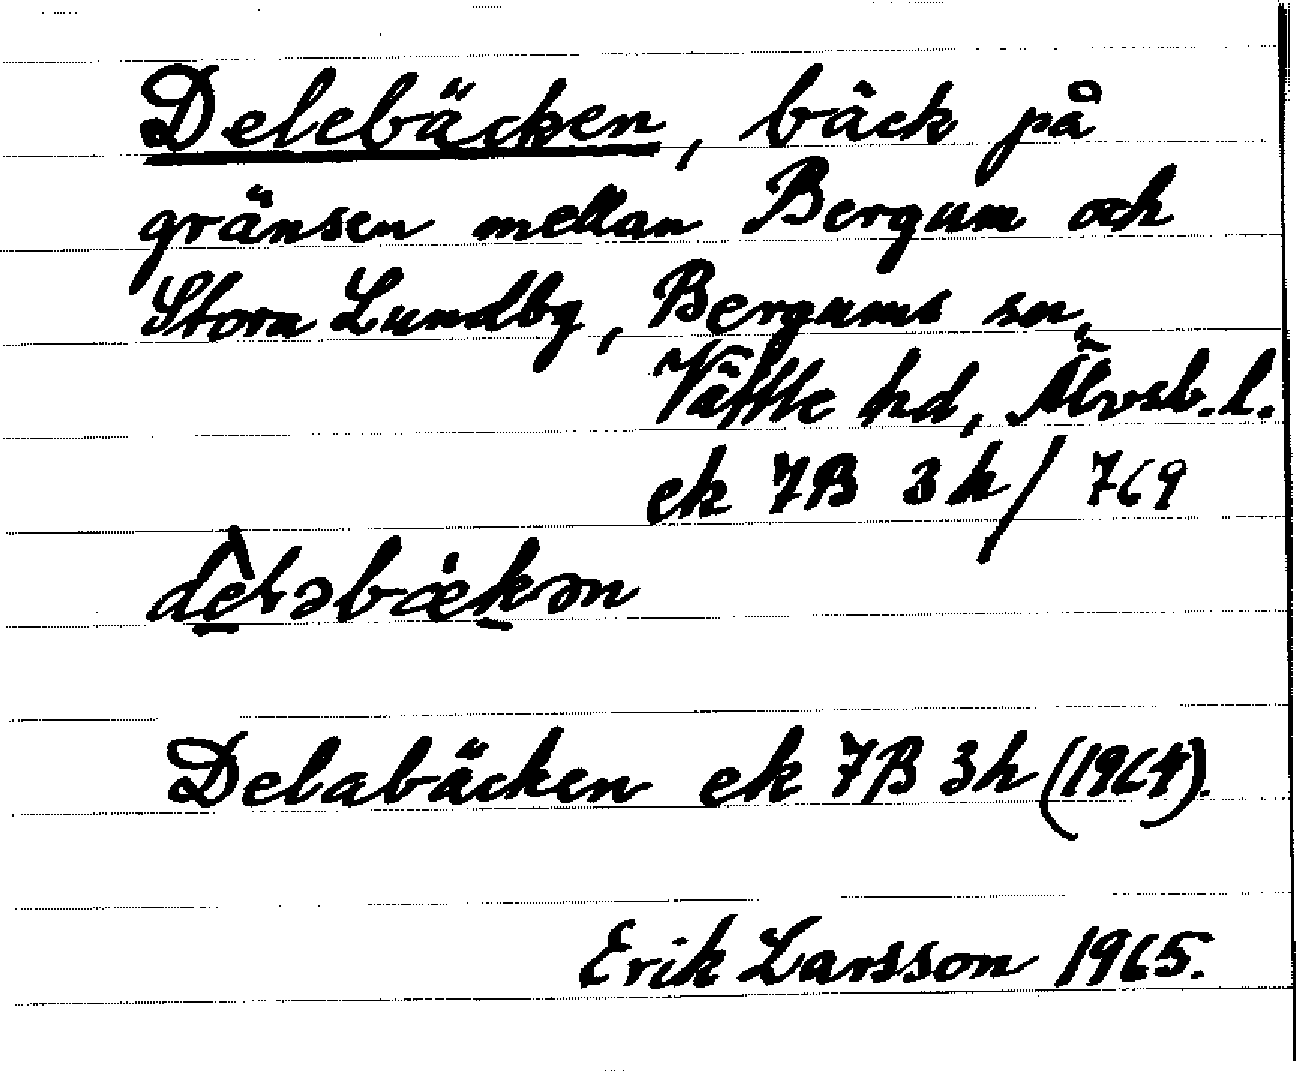 Delebäcken, bäck på
gränsen mellan Bergum och
Stora Lundby, Bergums sn,
Vättle hd, Älvsb. l.
ek 7B 3h/769
Delabäcken ek 7B 3h (1964).
Erik Larsson 1965.